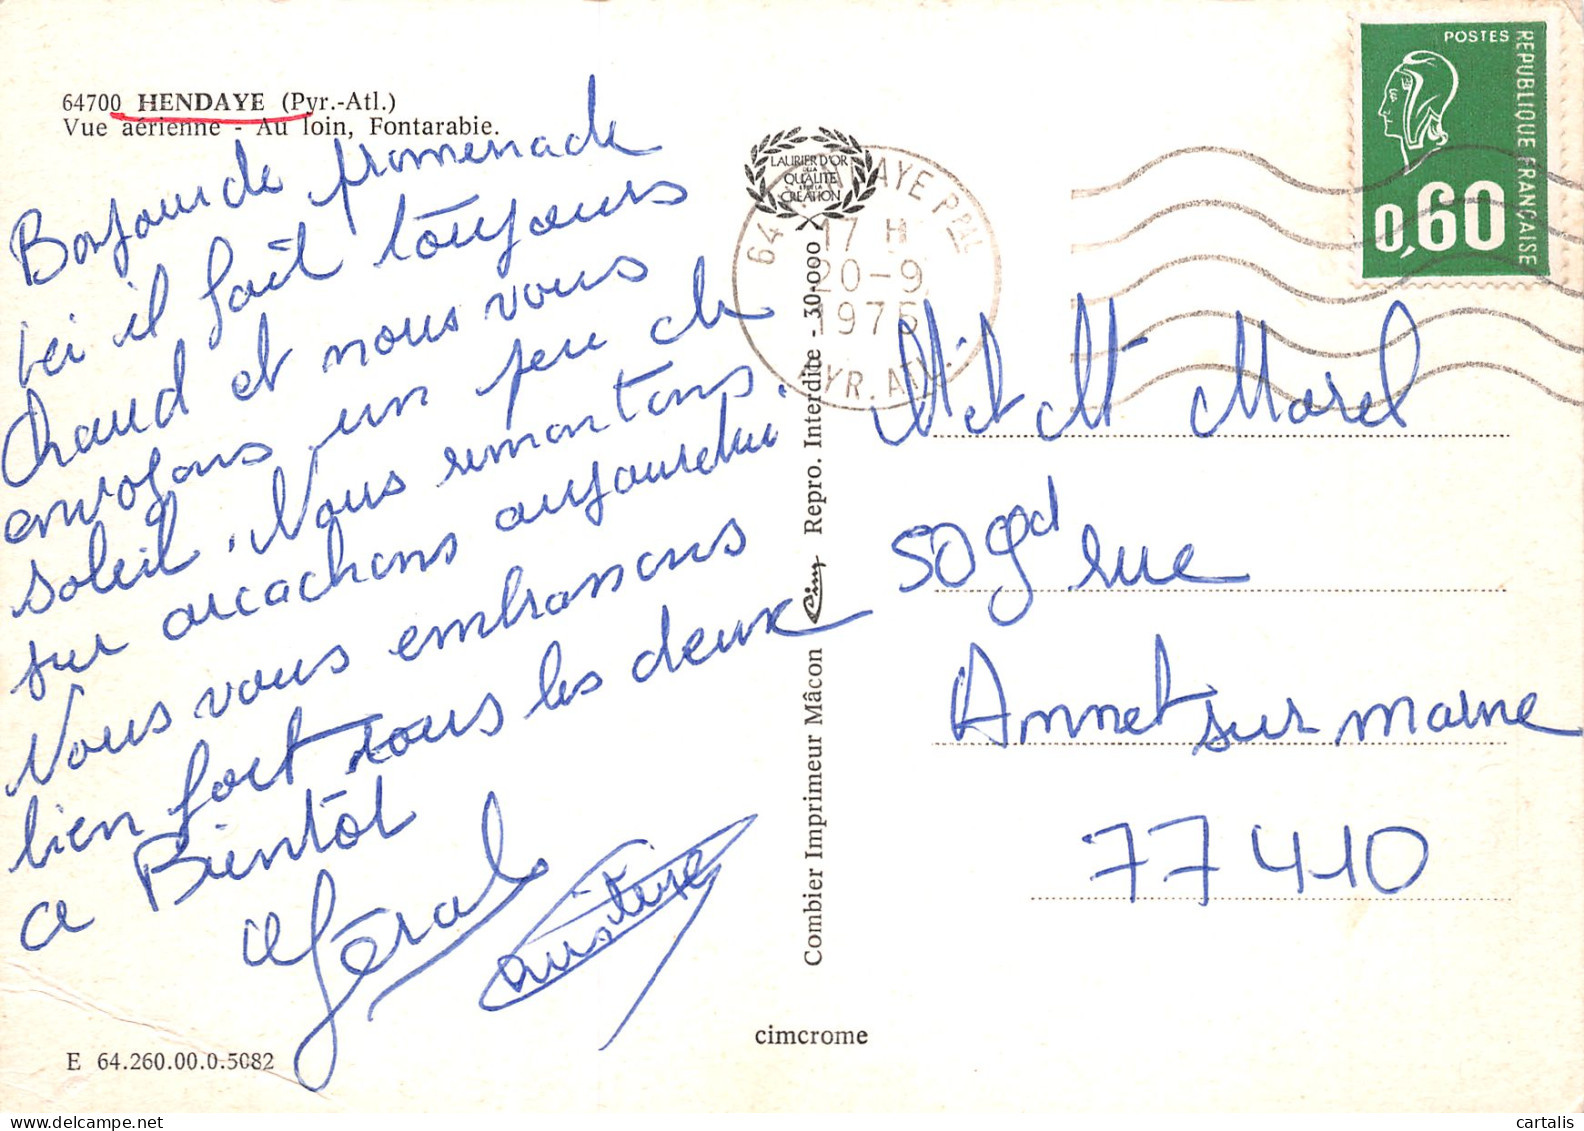 64700 HENDAYE (Pyr.-Atl.)
Vue aérienne - Au loin, Fontarabie.
Bonjour de promenade
ici il fait toujours
chaud et nous vous
envoyons un peu de
soleil. Nous remontons
sur arcachons aujourdui.
Nous vous embrassons
bien fort tous les deux
a Bientôt
Gérald
LAURIER D'OR
DE LA
QUALITE
ET DE LA
CREATION
17 H
20-9
1975
PYR. ATL.
POSTES
REPUBLIQUE FRANÇAISE
0,60
M et M Morel
50 gd rue
Annet sur marne
77410
Combier Imprimeur Mâcon Cim Repro. Interdite - 30-000
cimcrome
E 64.260.00.0.5082
cartalis